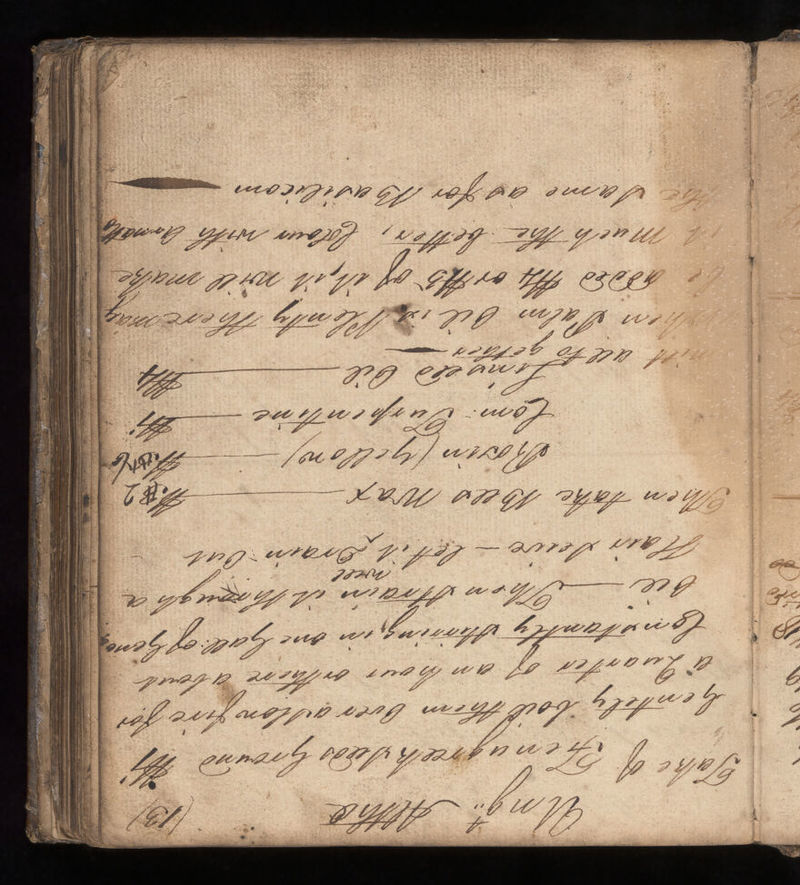 (13)
Ung:t Altha
Take of Fenugreek Seeds Ground ℔j
gently boil them over a slow fire for
a Quarter of an hour or there about
Constantly stirring in one Gall: of Linsd
Oil — Then Strain it through a
Hair Sieve – let it well Drain Out
Then take Bees Wax ℔ 2
Rosin (yellow) ℔
Com: Turpentine ℔j
Linseed Oil ℔4
mix all to gether
when Palm Oil is Plenty there may
be added ℔4 or ℔5 of it, it will make
it much the better, Colour with Annatto
the same as for Basilicom